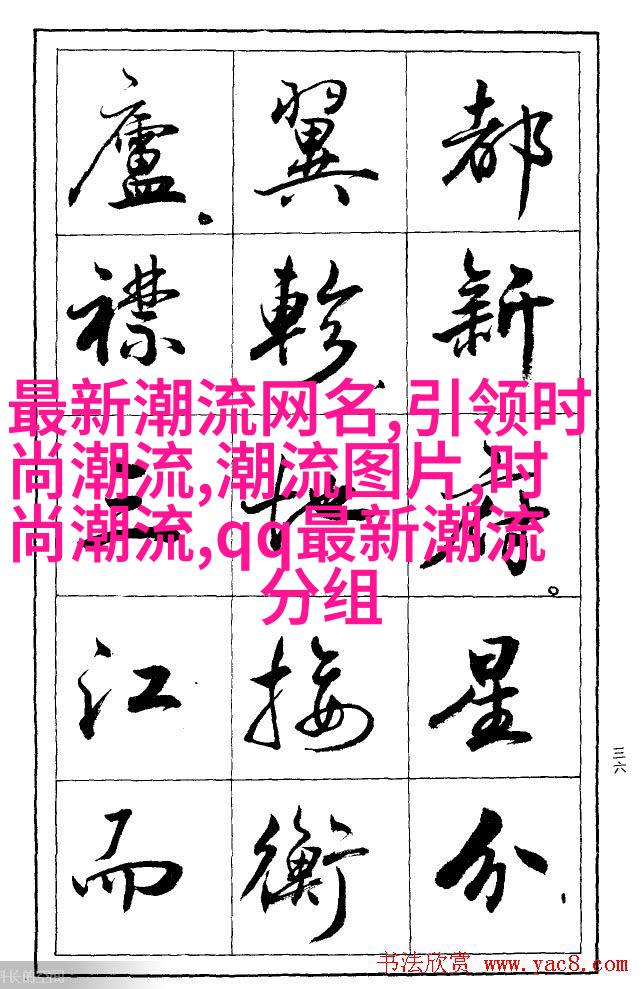 都新府。星分、
翼軫、地接衡
廬。襟三江而
最新潮流网名,引领时
尚潮流,潮流图片,时
尚潮流,qq最新潮流
分组
三六
书法欣赏 www.yac8.com
长的空间